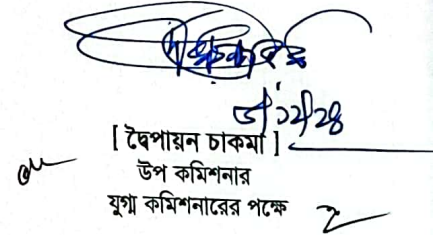 [ দ্বৈপায়ন চাকমা ]
উপ কমিশনার
যুগ্ম কমিশনারের পক্ষে